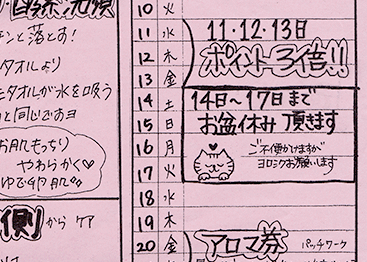 酵素洗顔
ンと落とす!
タオルより
とタオルが水を吸う
と同じですヨ
お肌もっちり
やわらかく♡
ゆで卵肌
側から ケア
10 火
11 水
12 木
13 金
14 土
15 日
16 月
17 火
18 水
19 木
20 金
11・12・13日
ポイント3倍!!
14日〜17日まで
お盆休み 頂きます
ご不便かけますが
ヨロシクお願いします
アロマ券
パッチワーク